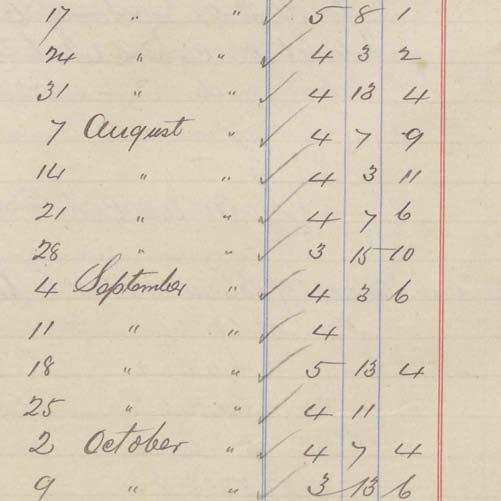 17 " " ✓ 5 8 1
24 " " ✓ 4 3 2
31 " " ✓ 4 13 4
7 August " ✓ 4 7 9
14 " " ✓ 4 3 11
21 " " ✓ 4 7 6
28 " " ✓ 3 15 10
4 September " ✓ 4 3 6
11 " " ✓ 4
18 " " ✓ 5 13 4
25 " " ✓ 4 11
2 October " ✓ 4 7 4
9 " " ✓ 3 13 6